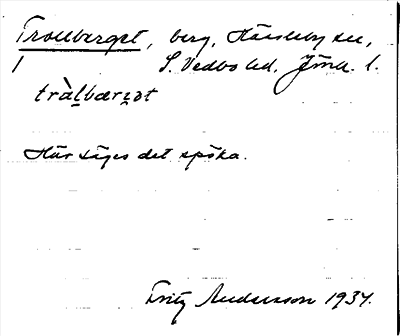 Trollberget, berg, Hässleby sn,
1 S. Vedbo hd, Jönk. l.
tràlbærjət
Här säges det spöka.
Fritz Andersson 1934.